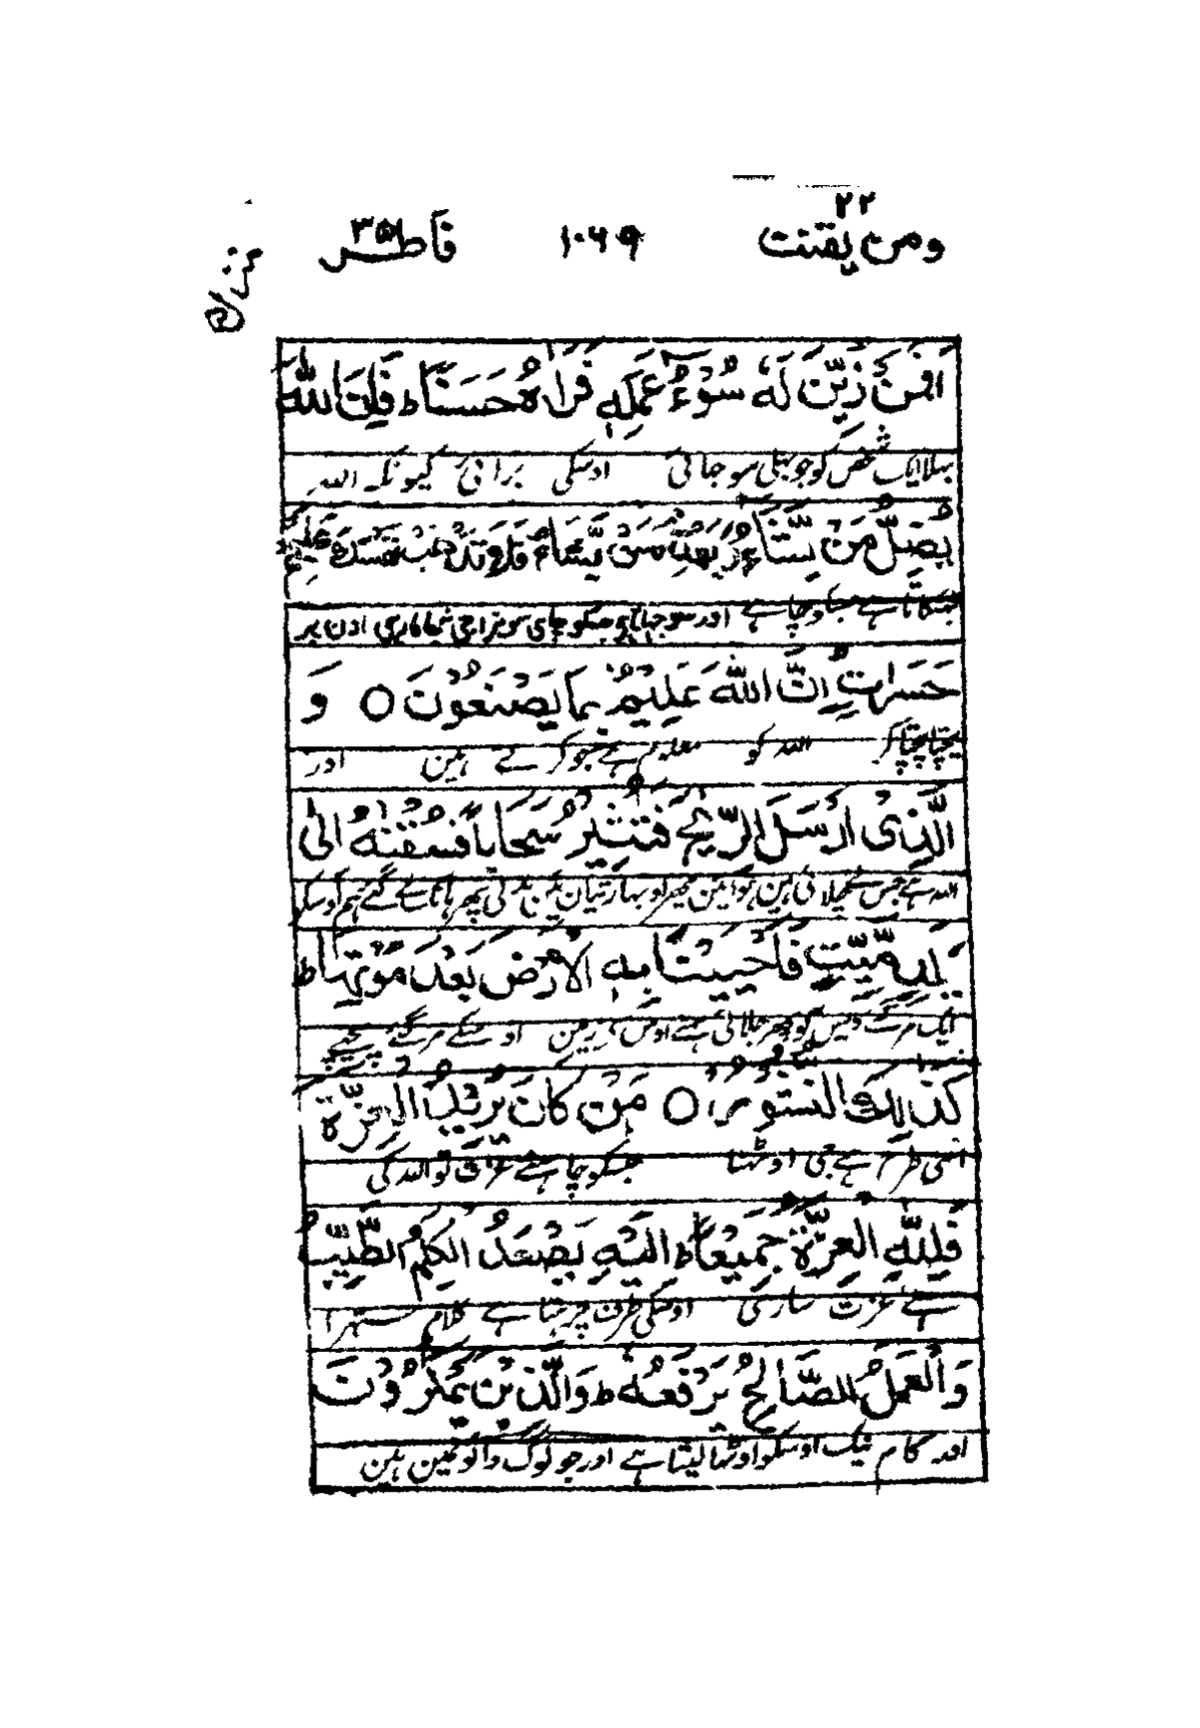 ومن يقنت ٢٢ ١٠٦٩ فاطر ٣٥
افمن زين له سوء عمله فراه حسنا ط فان الله
ایک شخص کو جو بھلی سوجائی اوسکی برائی کیونکہ اللہ
يضل من يشاء ويهدي من يشاء فلا تذهب نفسك عليهم
ہے جسکو چاہے اور سوجہاتا ہے جسکو چاہی سو نہ جاتی اون پر
حسرات ان الله عليم بما يصنعون ○ و
پچتا پچتا کر اللہ کو معلوم ہے جو کرتے ہین اور
الذى ارسل الريح فتثير سحابا فسقنه الى
اللہ ہے جس نے
بلد ميت فاحييتا به الارض بعد موتها ط
ایک مر گئے دیس کو پھر جلائی ہمنے اوس سے زمین اوسکے مر گئے پیچھے
كذلك النشور ○ من كان يريد العزة
اسی طرح ہے جی اوٹھنا جسکو چاہئے عزت تو اللہ کی
فلله العزة جميعا ط اليه يصعد الكلم الطيب
ہے عزت ساری اوسکی طرف چڑھتا ہے کلام ستھرا
والعمل الصالح يرفعه ط والذين يمكرون
اور کام نیک اوسکو اوٹھا لیتا ہے اور جو لوگ داؤ مین ہین